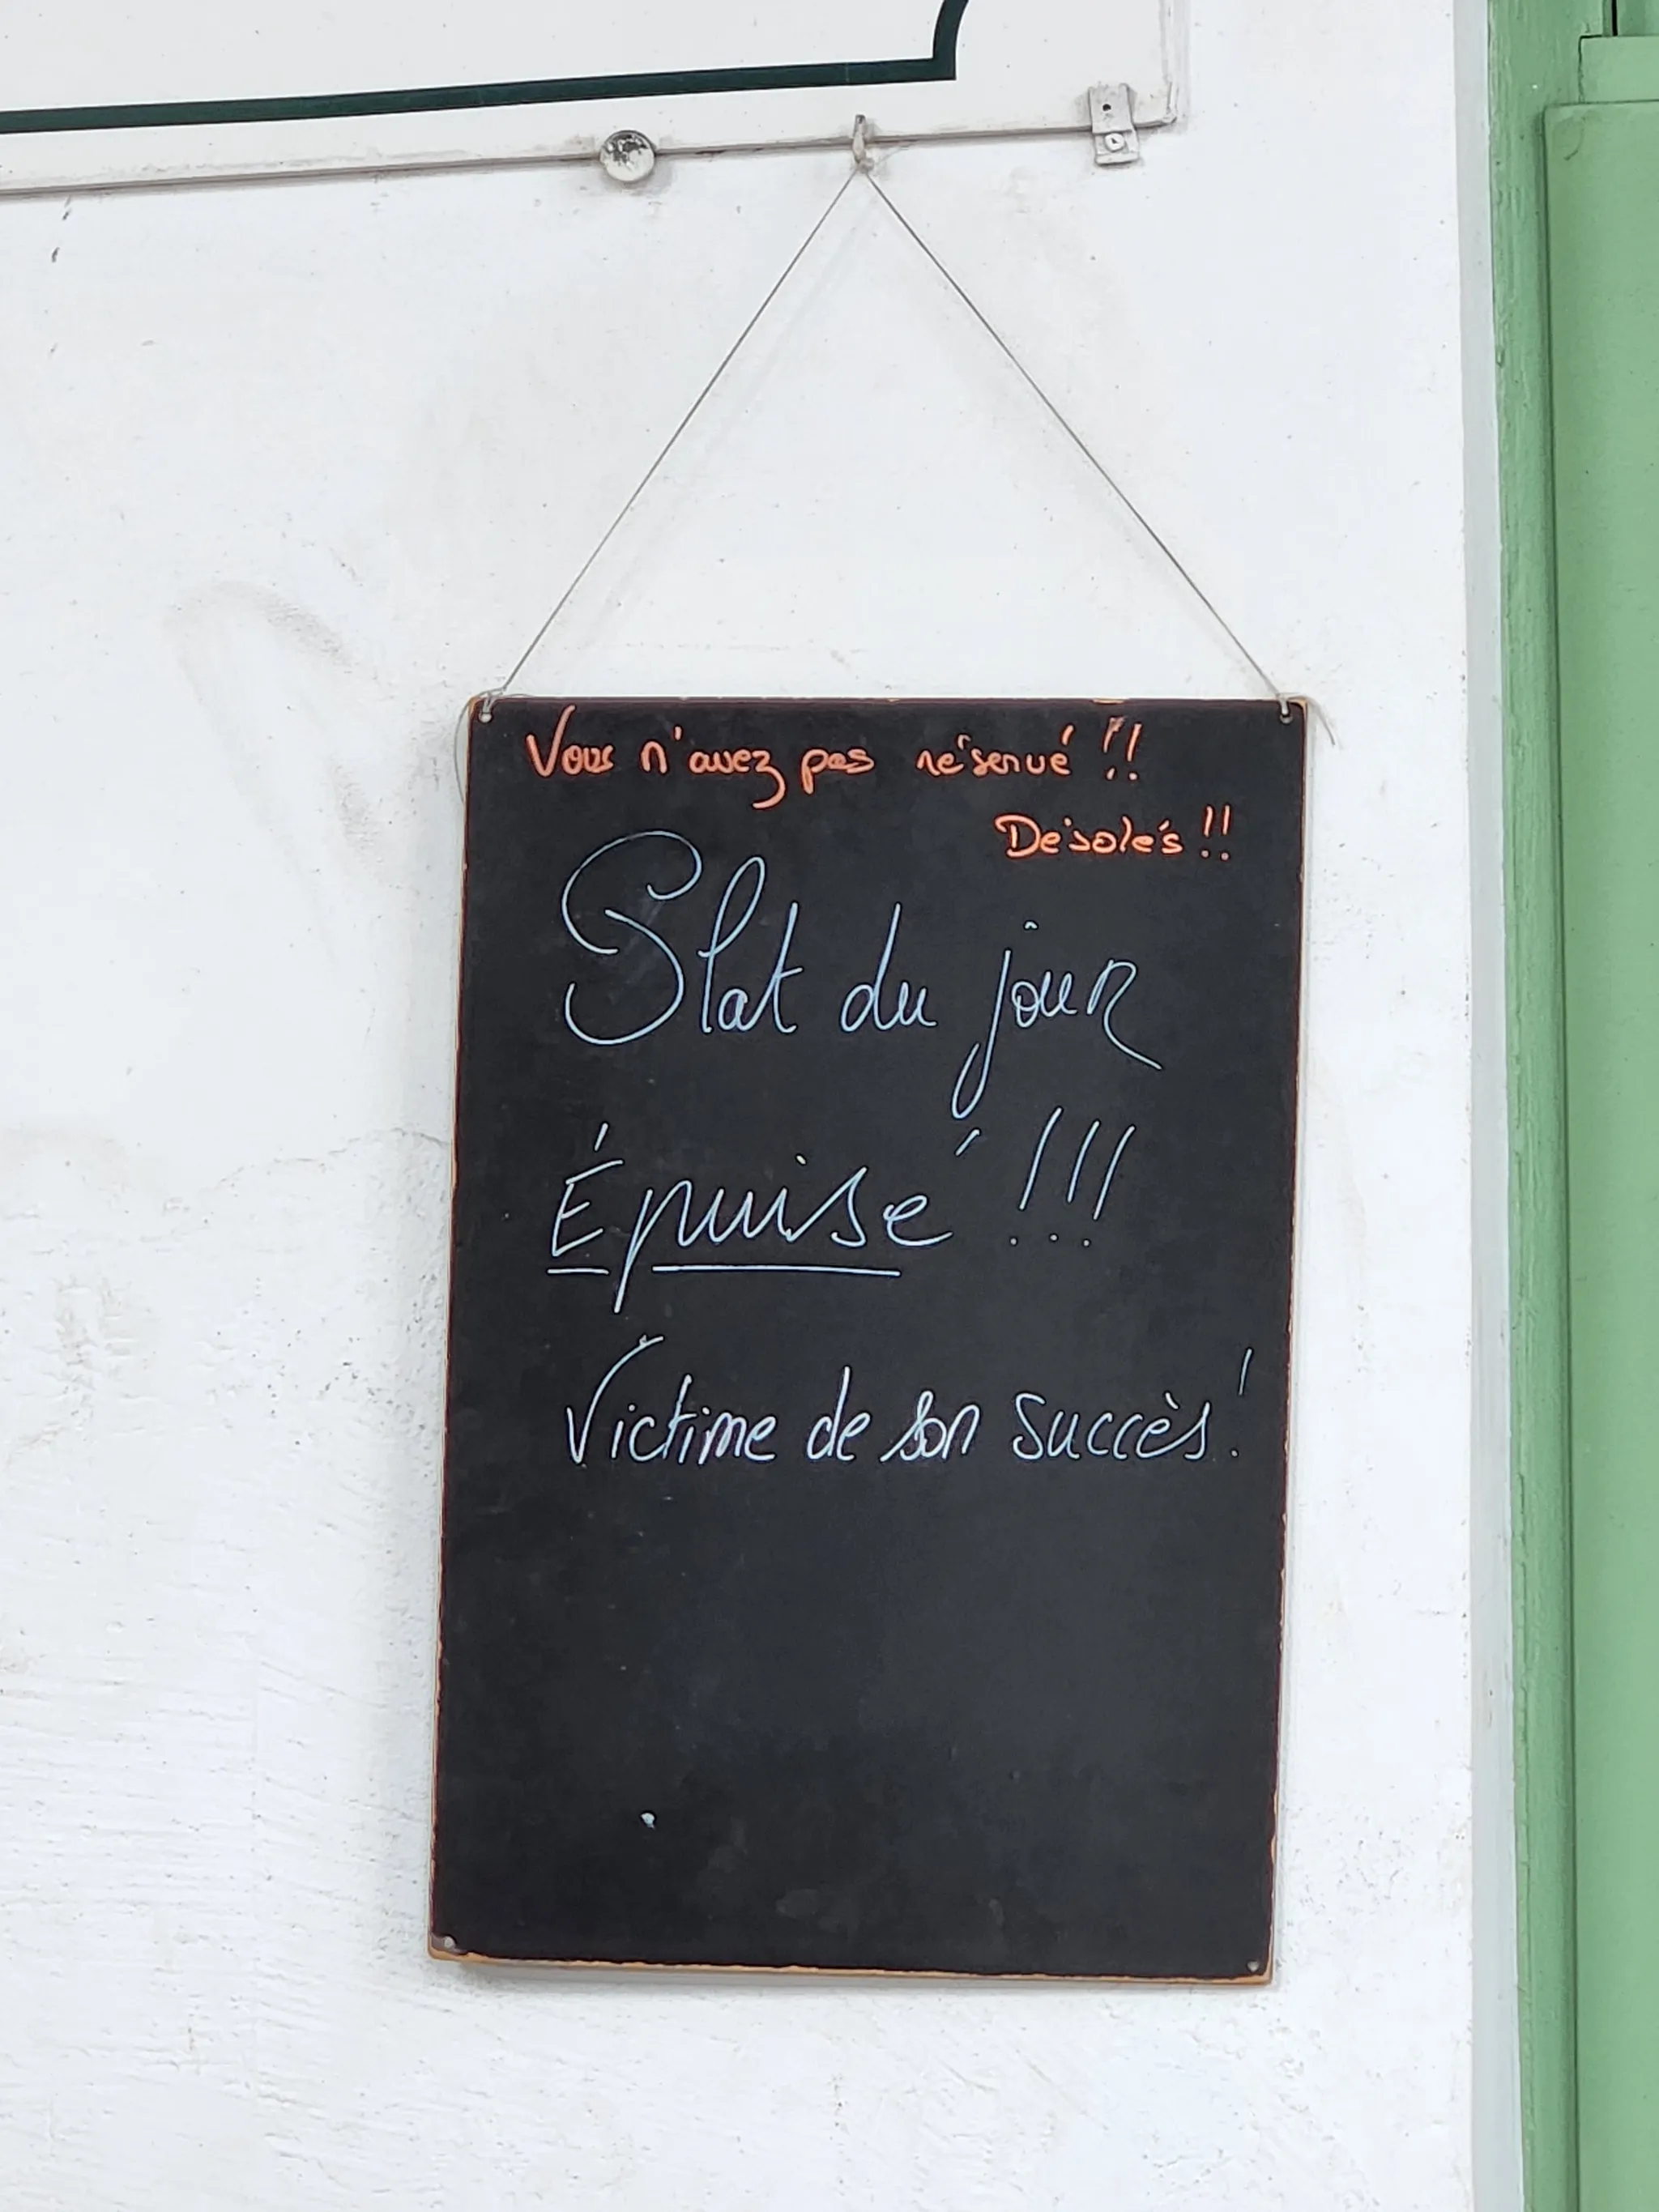 Vous n'avez pas réservé !!
Désolés !!
Plat du jour
Épuisé !!!
Victime de son succès !